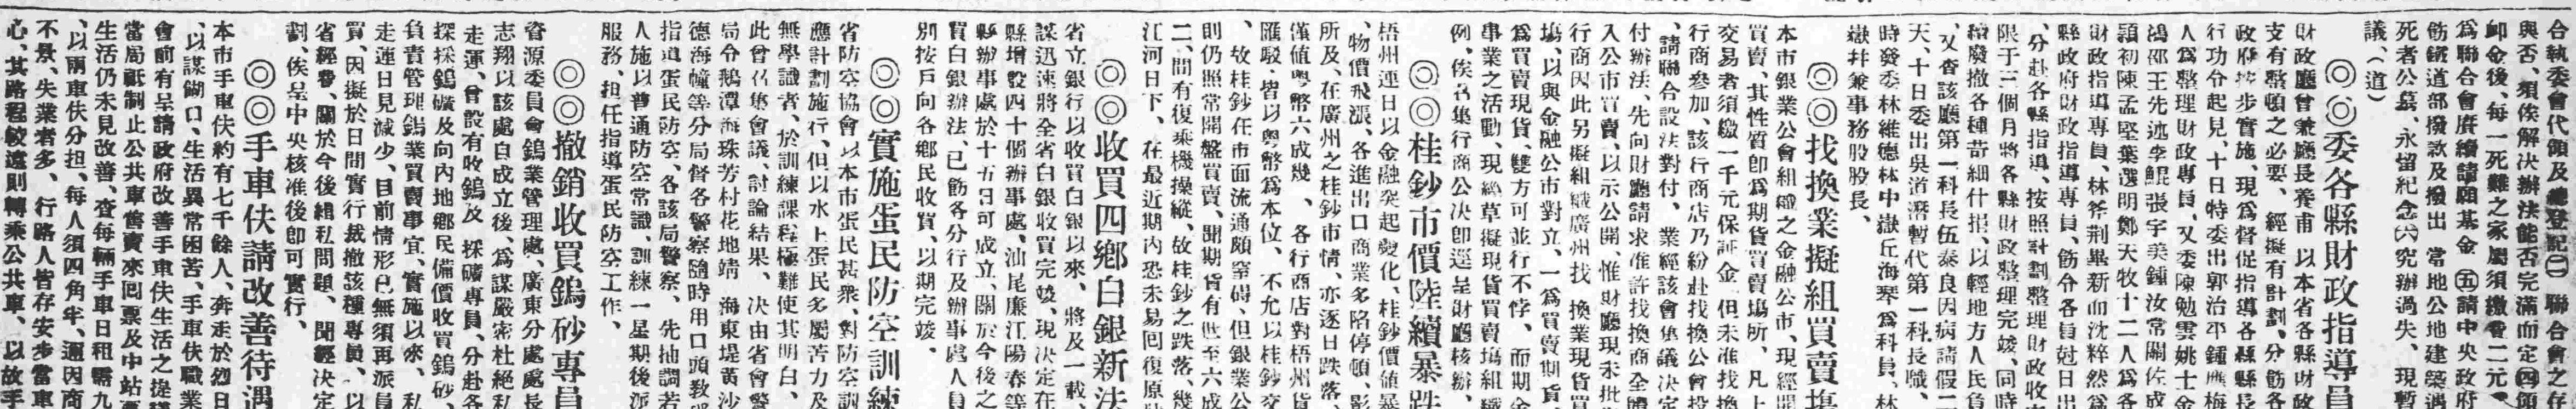 合執委會代領及總登記㊂聯合會之存
與否、須俟解決辦法能否完滿而定㊃領
卹金後、每一死難之家屬須繳費二元、
為聯合會賡續請願基金㊄請中央政府
飭鐵道部撥款及撥出 當地公地建築遇
死者公墓、永留紀念㊅究辦過失、現暫
議、(道)
◎◎委各縣財政指導員
財政廳曾兼廳長養甫 以本省各縣財政
支有整頓之必要、經擬有計劃、分飭各
政府步步實施、現為督促指導各縣縣長
行功令起見、十日特委出郭治平鍾應梅
人為整理財政專員、又委陳勉雲姚士金
鴻邵王先述李鯤張宇美鍾汝常關佐成
顯初陳孟堅葉選明鄭天牧十二人為各
財政指導專員、林斧荆畢新而沈粹然為
縣政府財政指導專員、飭令各員尅日出
、分赴各縣指導、按照計劃整理財政收
限于三個月將各縣財政整理完竣、同時
續廢撤各種苛細什捐、以輕地方人民負
、又查該廳第一科長伍泰良因病請假二
天、十日委出吳道濟暫代第一科長職、
時發委林維德林中嶽丘海琴為科員、林
嶽幷兼事務股股長、
◎◎找換業擬組買賣塲
本市銀業公會組織之金融公市、現經開
買賣、其性質即為期貨買賣塲所、凡上
交易者須繳一千元保証金、但未准找換
行商參加、該行商店乃紛赴找換公會投
、請聯合設法對付、業經該會集議決定
付辦法、先向財廳請求准許找換商全體
入公市買賣、以示公開、惟財廳現未批
行商因此另擬組織廣州找 換業現貨買
塲、以與金融公市對立、一為買賣期貨、
為買賣現貨、雙方可並行不悖、 而期金
事業之活動、現經草擬現貨買賣塲組織
例、俟召集行商公决卽逕呈財廳核辦、
◎◎桂鈔市價陸續暴跌
梧州連日以金融突起變化、桂鈔價値暴
、物價飛漲、各進出口商業多陷停頓、影
所及、在廣州之桂鈔市情、亦逐日跌落、
僅値粤幣六成幾、 各行商店對梧州貨
滙駁、皆以粤幣為本位、 不允以桂鈔交
、故桂鈔任市面流通頗窒碍、但銀業公
則仍照常開盤買賣、聞期貨有世至六成
二、間有復乘機操縱、故桂鈔之跌落、幾
江河日下、在最近期內恐未易囘復原狀
◎◎收買四鄉白銀新法
省立銀行以收買白銀以來、將及一載、
謀迅速將全省白銀收買完竣、現决定在
縣增設四十個辦事處、汕尾廉江陽春等
縣辦事處於十五日可成立、關於今後之
買白銀辦法、已飭各分行及辦事處人員
別按戶向各鄉民收買、以期完竣。
◎◎實施蛋民防空訓練
省防空協會以本市蛋民甚衆、對防空訓
應計劃施行、但以水上蛋民多屬苦力及
無學識者、於訓練課程極難使其明白、
此曾召集會議討論結果、決由省會警
局令鵝潭海珠芳村花地靖 海東堤黃沙
德海幢等分局督各警察隨時用口頭教
指道蛋民防空、各該局警察、先抽調若
人施以普通防空常識、訓練一星期後派
服務、担任指導蛋民防空工作、
◎◎撤銷收買鎢砂專員
資源委員會鎢業管理處、廣東分處處長
志翔以該處自成立後、為謀嚴密杜絕私
走運、曾設有收鎢及 採礦專員、分赴各
探採鎢礦及向內地鄉民備價收買鎢砂、
負責管理鎢業買賣事宜、實施以來、私
走運日見減少、目前情形已無須再派員
買、因擬於日間實行裁撤該種專員、以
省經費、關於今後緝私問題、聞經決定
劃、俟呈中央核准後卽可實行、
◎◎手車伕請改善待遇
本市手車伕約有七千餘人、奔走於烈日
、以謀餬口、生活異常困苦、手車伕職業
會前有呈請政府改善手車伕生活之提議
當局祗制止公共車舊賣來囘票及中站
生活仍未見改善、查每輛手車日租需九
、以兩車伕分担、每人須四角半、適因商
不景、失業者多、行路人皆存安步當車
心、其路程較遠則轉乘公共車、以故手